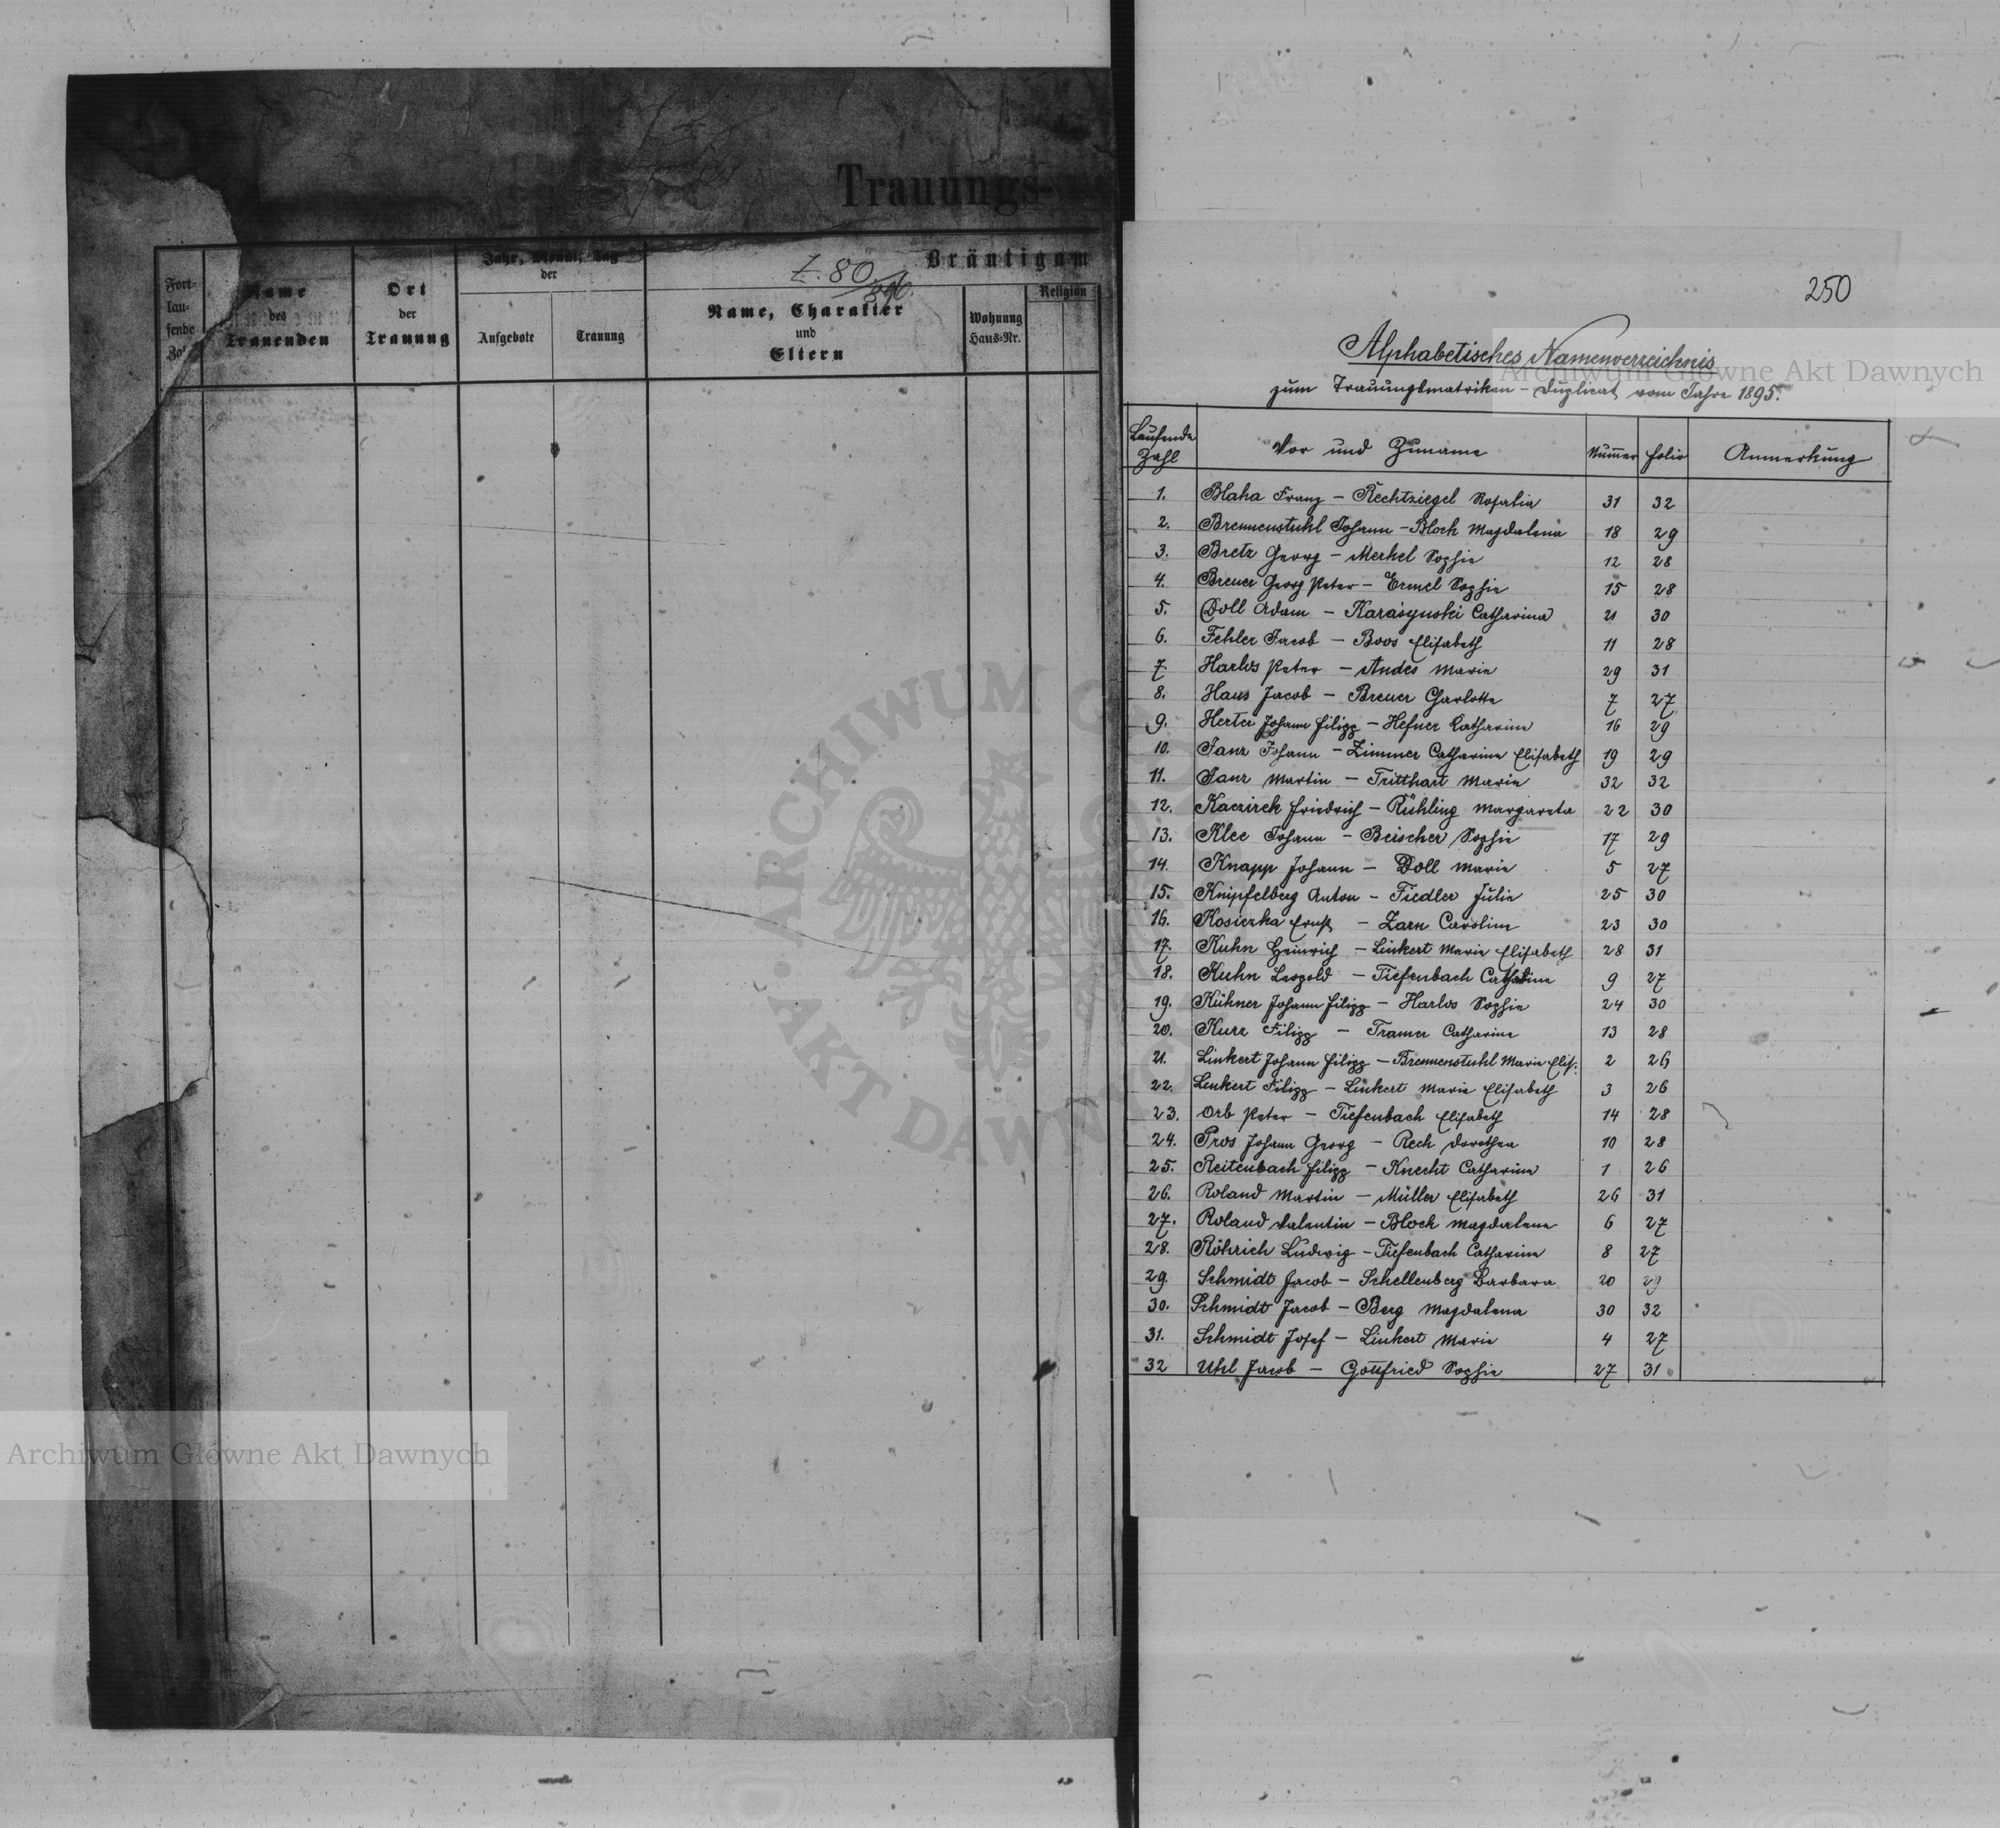 Trauungs-
Bräutigam
Z. 80/896.
Fort-
lau-
fende
Name
des
Trauenden
Ort
der
Trauung
Jahr, Monat, Tag
der
Aufgebote
Trauung
Name, Charakter
und
Eltern
Wohnung
Haus-Nr.
Religion
250
Alphabetisches Namenverzeichnis
zum Trauungsmatriken-Duplicat vom Jahre 1895.
Laufende Zahl Vor und Zuname Nummer Folio Anmerkung
1. Blaha Franz – Rechtziegel Rosalia 31 32
2. Brennenstuhl Johann – Bloch Magdalena 18 29
3. Bretz Georg – Merkel Sophie 12 28
4. Breuer Georg Peter – Ermel Sophie 15 28
5. Doll Adam – Karasynski Catharina 21 30
6. Fehler Jacob – Boos Elisabeth 11 28
7 Harlos Peter – Andes Marie 29 31
8. Haus Jacob – Breuer Charlotte 7 27
9. Herter Johann Filipp – Hefner Katharina 16 29
10. Janz Johann – Zimmer Catharine Elisabeth 19 29
11. Janz Martin – Tritthart Marie 32 32
12. Kaczirek Friedrich – Rühling Margareta 22 30
13. Klee Johann – Beischer Sophie 17 29
14. Knapp Johann – Doll Marie 5 27
15. Knipfelberg Anton – Fiedler Julie 25 30
16. Kosiczka Ernst – Zarn Caroline 23 30
17. Kuhn Heinrich – Linkert Marie Elisabeth 28 31
18. Kuhn Leopold – Tiefenbach Catharine 9 27
19. Kühner Johann Filipp – Harlos Sophie 24 30
20. Kurz Filipp – Tramer Catharine 13 28
21. Linkert Johann Filipp – Brennenstuhl Marie Elis. 2 26
22. Linkert Filipp – Linkert Marie Elisabeth 3 26
23. Orb Peter – Tiefenbach Elisabeth 14 28
24. Pros Johann Georg – Rech Dorothea 10 28
25. Reitenbach Filipp – Knecht Catharina 1 26
26. Roland Martin – Müller Elisabeth 26 31
27. Roland Valentin – Bloch Magdalena 6 27
28. Röhrich Ludwig – Tiefenbach Catharine 8 27
29. Schmidt Jacob – Schellenberg Barbara 20 29
30. Schmidt Jacob – Berg Magdalena 30 32
31. Schmidt Josef – Linkert Marie 4 27
32 Uhl Jacob – Gottfried Sophie 27 31
Archiwum Główne Akt Dawnych
Archiwum Główne Akt Dawnych